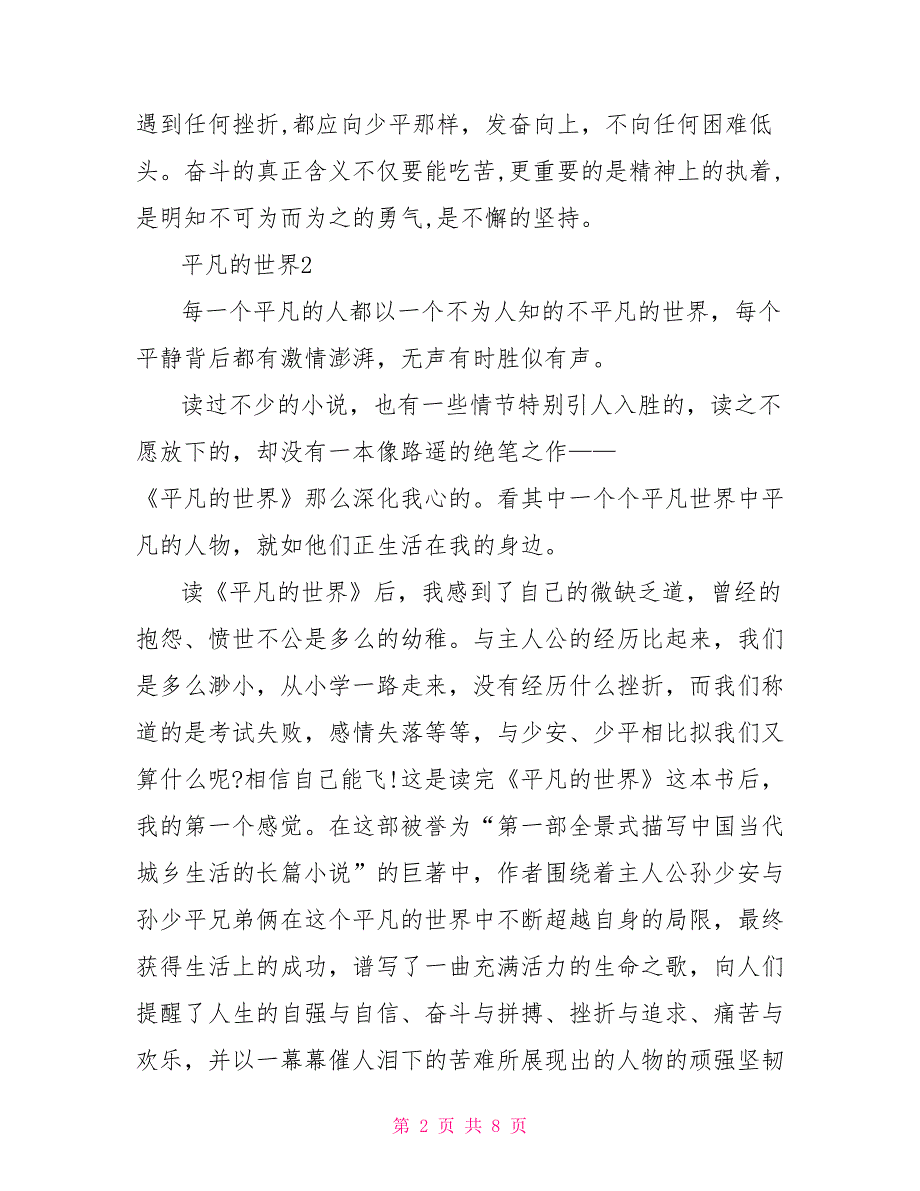 遇到任何挫折,都应向少平那样，发奋向上，不向任何困难低
头。奋斗的真正含义不仅要能吃苦,更重要的是精神上的执着,
是明知不可为而为之的勇气,是不懈的坚持。
平凡的世界2
每一个平凡的人都以一个不为人知的不平凡的世界，每个
平静背后都有激情澎湃，无声有时胜似有声。
读过不少的小说，也有一些情节特别引人入胜的，读之不
愿放下的，却没有一本像路遥的绝笔之作——
《平凡的世界》那么深化我心的。看其中一个个平凡世界中平
凡的人物，就如他们正生活在我的身边。
读《平凡的世界》后，我感到了自己的微缺乏道，曾经的
抱怨、愤世不公是多么的幼稚。与主人公的经历比起来，我们
是多么渺小，从小学一路走来，没有经历什么挫折，而我们称
道的是考试失败，感情失落等等，与少安、少平相比拟我们又
算什么呢?相信自己能飞!这是读完《平凡的世界》这本书后，
我的第一个感觉。在这部被誉为“第一部全景式描写中国当代
城乡生活的长篇小说”的巨著中，作者围绕着主人公孙少安与
孙少平兄弟俩在这个平凡的世界中不断超越自身的局限，最终
获得生活上的成功，谱写了一曲充满活力的生命之歌，向人们
提醒了人生的自强与自信、奋斗与拼搏、挫折与追求、痛苦与
欢乐，并以一幕幕催人泪下的苦难所展现出的人物的顽强坚韧
第 2 页 共 8 页